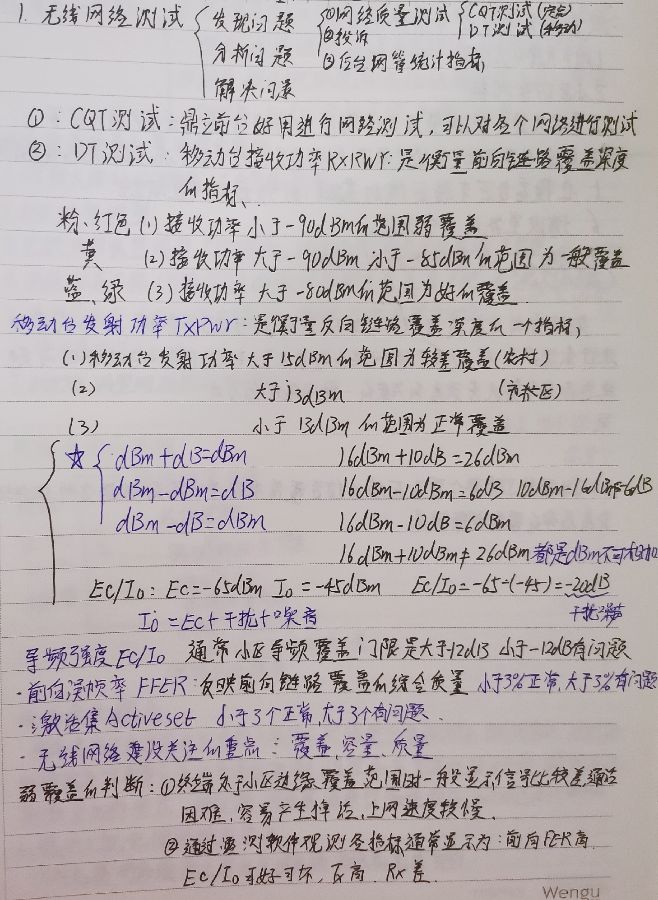 1. 无线网络测试 { 发现问题 ①网络质量测试 { CQT测试(定点)
分析问题 ②投诉 DT测试(移动)
解决问题 ③后台网管统计指标,
①: CQT测试:鼎立前台好用进行网路测试,可以对各个网络进行测试
②: DT测试:移动台接收功率RxPWr:是衡量前向链路覆盖深度
的指标、
粉、红色 (1)接收功率小于-90dBm的范围弱覆盖
黄 (2)接收功率大于-90dBm 小于-85dBm的范围为一般覆盖
蓝、绿 (3)接收功率大于-80dBm的范围为好的覆盖
移动台发射功率TxPWr:是衡量反向链路覆盖深度的一个指标,
(1)移动台发射功率大于15dBm的范围为较差覆盖(农村)
(2) 大于13dBm (市区)
(3) 小于13dBm的范围为正常覆盖
☆ { dBm+dB=dBm 16dBm+10dB=26dBm
dBm-dBm=dB 16dBm-10dBm=6dB 10dBm-16dBm=-6dB
dBm-dB=dBm 16dBm-10dB=6dBm
16dBm+10dBm≠26dBm 都是dBm不可相加
Ec/Io: Ec=-65dBm Io=-45dBm Ec/Io=-65-(-45)=-20dB
Io=Ec+干扰+噪音 干扰
导频强度Ec/Io 通常小区导频覆盖门限是大于-12dB 小于-12dB有问题
·前向误帧率FFER:反映前向链路覆盖的综合质量 小于3%正常,大于3%有问题
·激活集Activeset 小于3个正常,大于3个有问题.
·无线网络建设关注的重点:覆盖,容量,质量
弱覆盖的判断:①终端处于小区边缘覆盖范围时一般显示信号比较差,通话
困难,容易产生掉话,上网速度较慢.
②通过测软件观测各指标通常显示为:前向FER高,
Ec/Io可好可坏,Tx高,Rx差.
Wengu